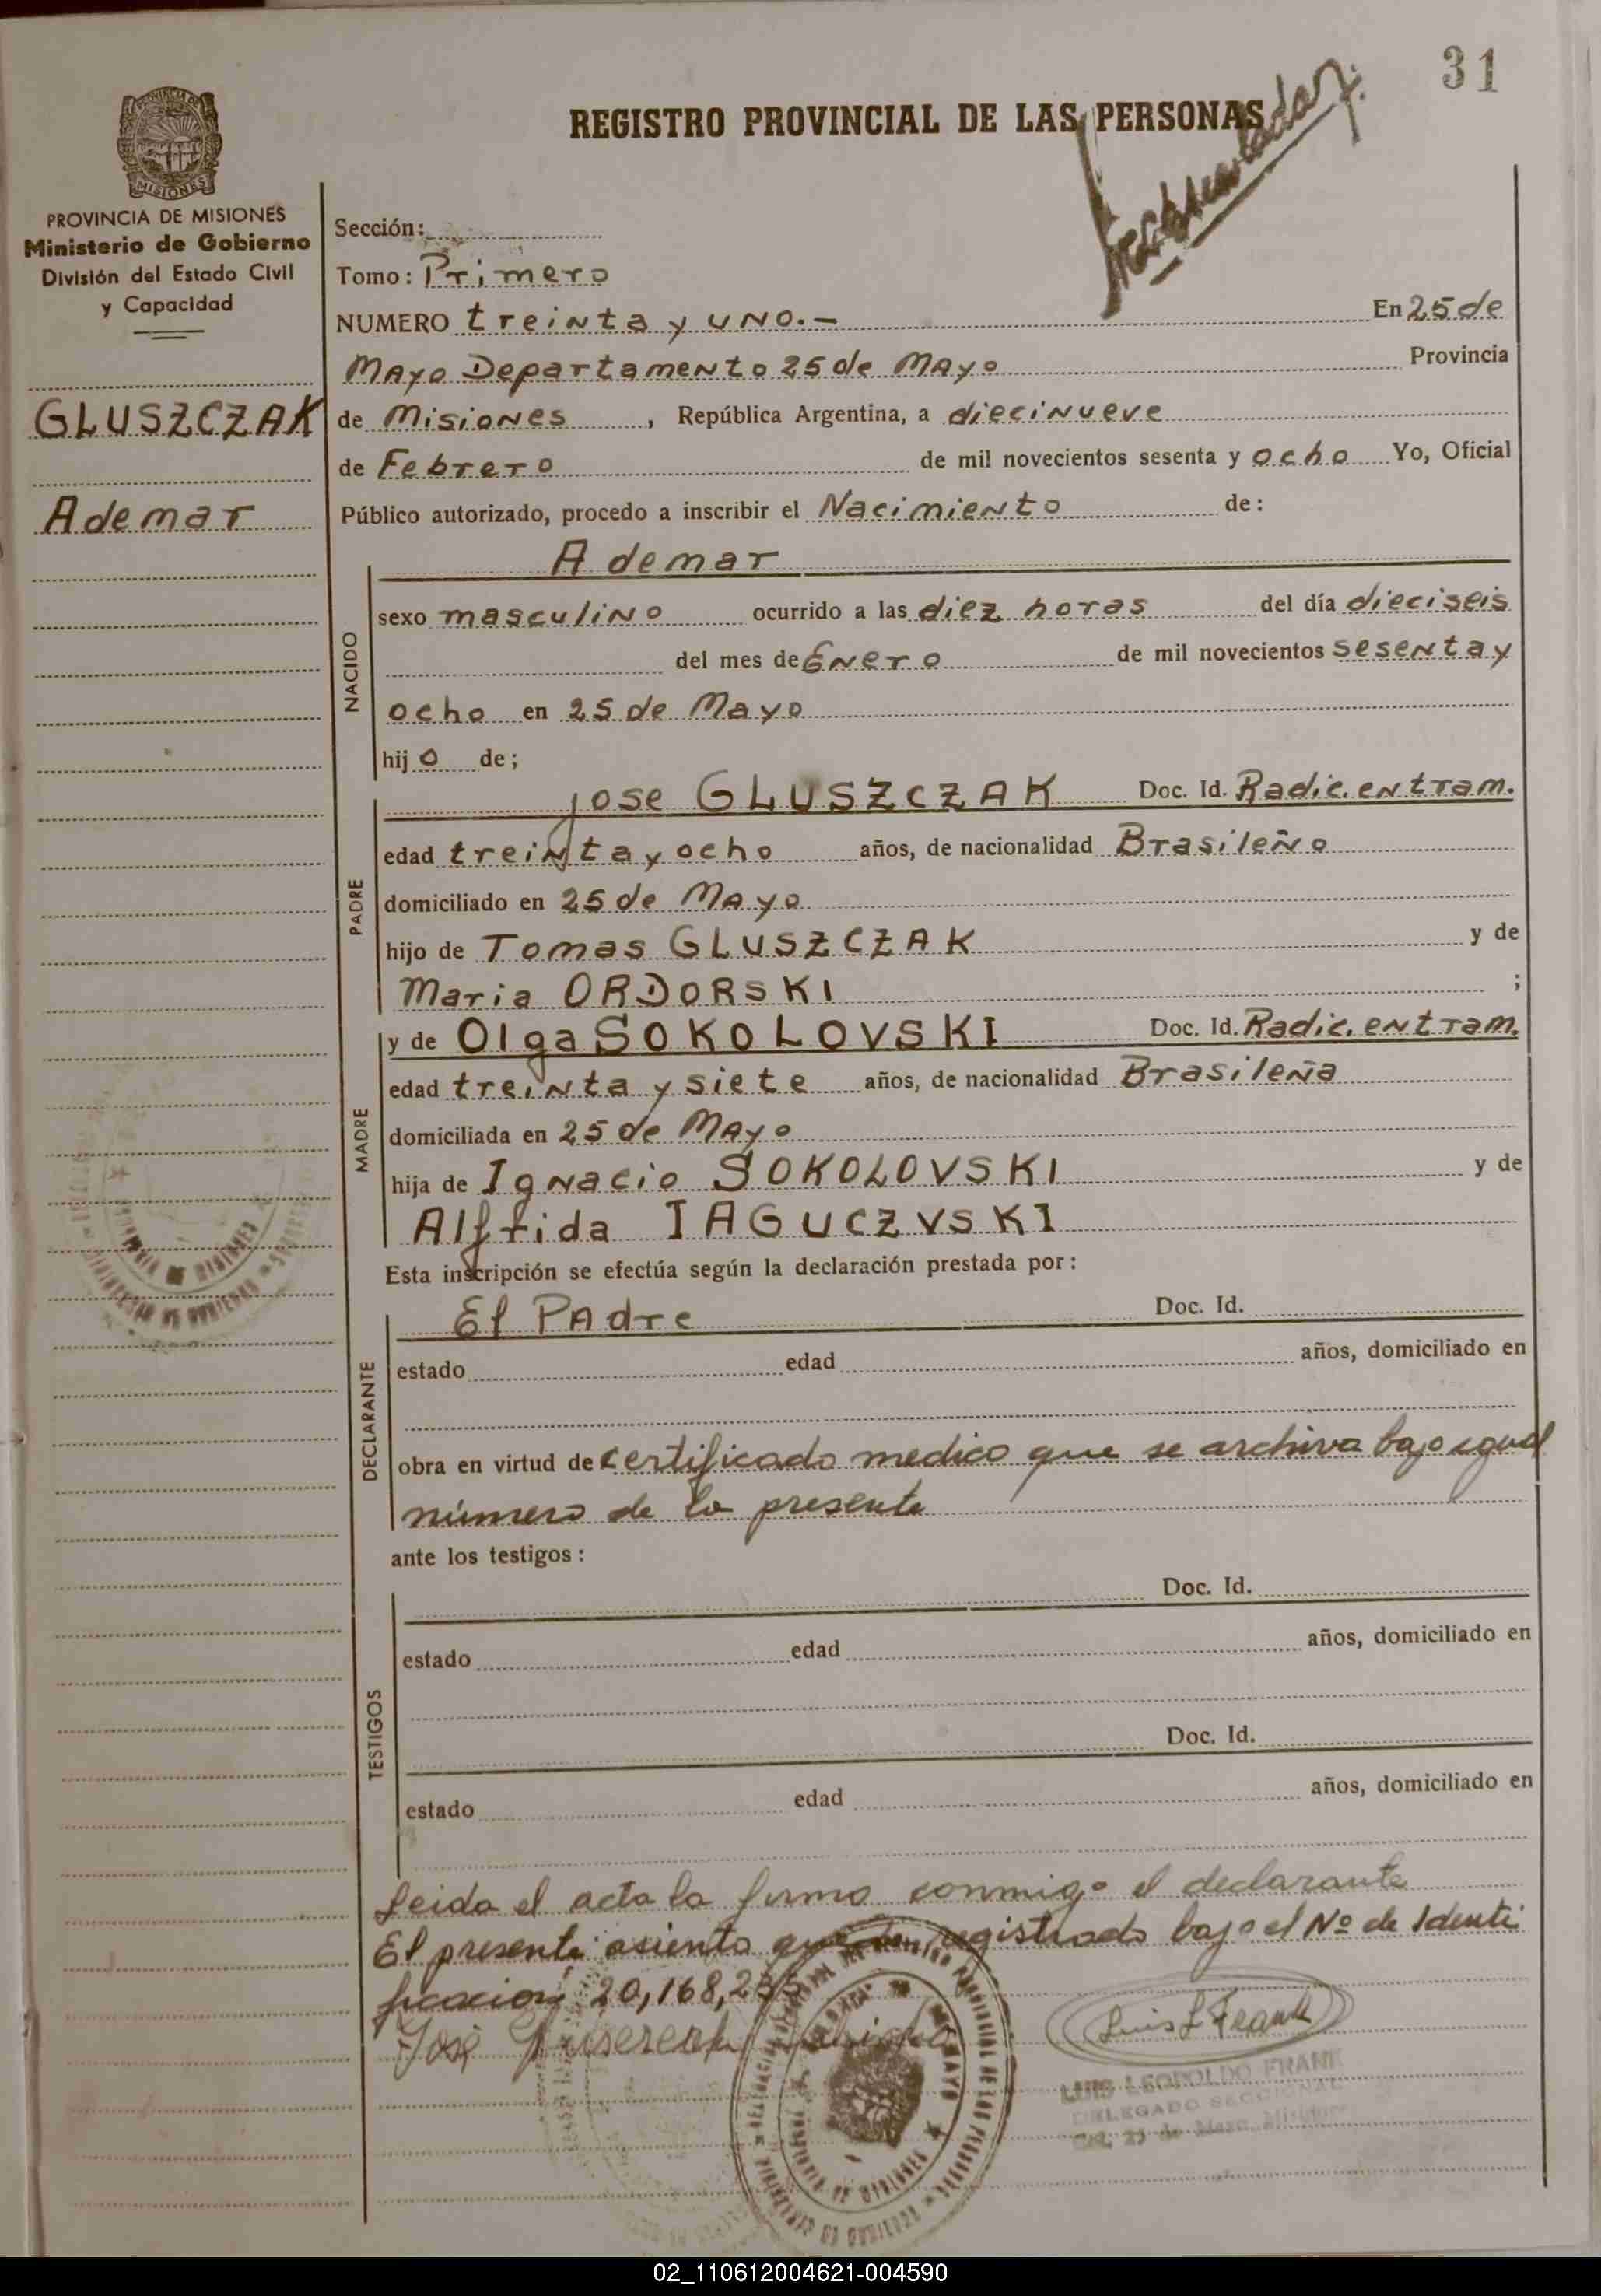 31
REGISTRO PROVINCIAL DE LAS PERSONAS
PROVINCIA DE MISIONES
Ministerio de Gobierno
División del Estado Civil
y Capacidad
GLUSZCZAK
Ademar
Sección:
Tomo: Primero
NUMERO treinta y uno.- En 25 de
Mayo Departamento 25 de Mayo Provincia
de Misiones, República Argentina, a diecinueve
de Febrero de mil novecientos sesenta y ocho Yo, Oficial
Público autorizado, procedo a inscribir el Nacimiento de:
NACIDO
Ademar
sexo masculino ocurrido a las diez horas del día dieciseis
del mes de Enero de mil novecientos sesenta y
ocho en 25 de Mayo
hijo de;
PADRE
jose GLUSZCZAK Doc. Id. Radic. en tram.
edad treinta y ocho años, de nacionalidad Brasileño
domiciliado en 25 de Mayo
hijo de Tomas GLUSZCZAK y de
Maria ORDORSKI ;
MADRE
y de Olga SOKOLOVSKI Doc. Id. Radic. en tram.
edad treinta y siete años, de nacionalidad Brasileña
domiciliada en 25 de Mayo
hija de Ignacio SOKOLOVSKI y de
Alfrida IAGUCZVSKI
Esta inscripción se efectúa según la declaración prestada por:
DECLARANTE
El Padre Doc. Id.
estado edad años, domiciliado en
obra en virtud de certificado medico que se archiva bajo igual
número de la presente
ante los testigos:
TESTIGOS
Doc. Id.
estado edad años, domiciliado en
Doc. Id.
estado edad años, domiciliado en
Leida el acta la firma conmigo el declarante
El presente asiento queda registrado bajo el Nº de Identi
ficacion 20,168,235
José
Luis L Frank
LUIS LEOPOLDO FRANK
DELEGADO SECCIONAL
Col. 25 de Mayo, Misiones
02_110612004621-004590